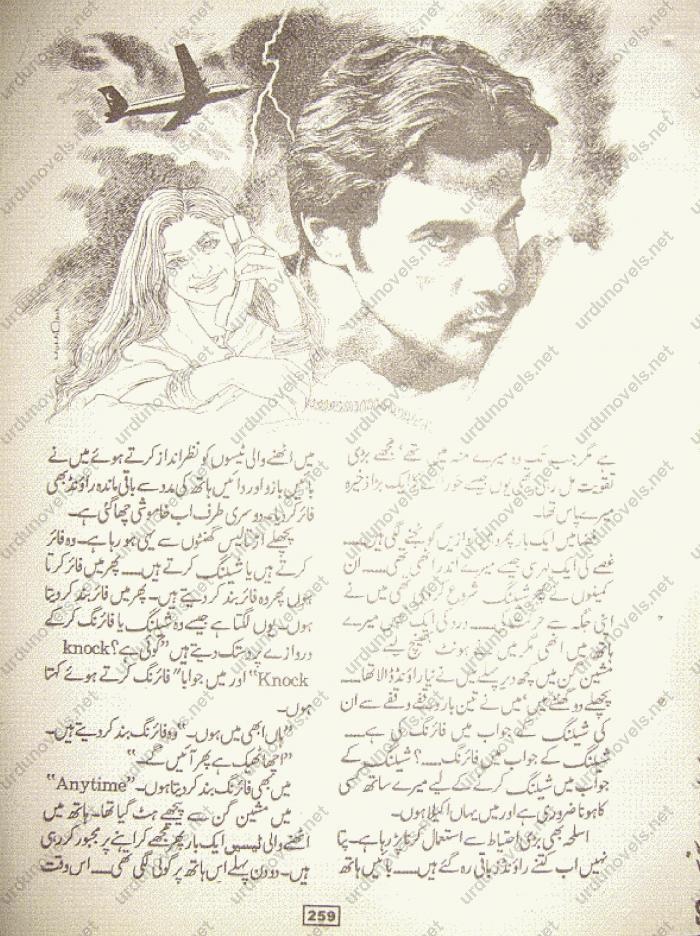 ہے مگر جب تک وہ میرے منہ میں تھے، مجھے بڑی
تقویت مل رہی تھی یوں جیسے خوراک کا ایک بڑا ذخیرہ
میرے پاس تھا۔
فضا میں ایک بار پھر وہی آوازیں گونجنے لگی ہیں......
غصے کی ایک لہر سی جیسے میرے اندر اٹھی تھی...... ان
کمینوں نے پھر شیلنگ شروع کر دی تھی میں نے
اپنی جگہ سے حرکت کی...... درد کی ایک لہر میرے
ہاتھ میں اٹھی مگر میں نے ہونٹ بھینچ لیے
مشین گن میں کچھ دیر پہلے میں نے نیا راؤنڈ ڈالا تھا......
پچھلے دو گھنٹے میں، میں نے تین بار وقفے وقفے سے ان
کی شیلنگ کے جواب میں فائرنگ کی ہے......
شیلنگ کے جواب میں فائرنگ......؟ شیلنگ کے
جواب میں شیلنگ کرنے کے لیے میرے ساتھ کسی
کا ہونا ضروری ہے اور میں یہاں اکیلا ہوں۔
اسلحہ بھی بڑی احتیاط سے استعمال کرنا پڑ رہا ہے۔ پتا
نہیں اب کتنے راؤنڈز باقی رہ گئے ہیں...... بائیں ہاتھ
میں اٹھنے والی ٹیسوں کو نظر انداز کرتے ہوئے میں نے
بائیں بازو اور دائیں ہاتھ کی مدد سے باقی ماندہ راؤنڈ بھی
فائر کر دیا۔ دوسری طرف اب خاموشی چھا گئی ہے۔
پچھلے اڑتالیس گھنٹوں سے یہی ہو رہا ہے۔ وہ فائر
کرتے ہیں یا شیلنگ کرتے ہیں...... پھر میں فائر کرتا
ہوں پھر وہ فائر بند کر دیتے ہیں۔ پھر میں فائر بند کر دیتا
ہوں۔ یوں لگتا ہے جیسے وہ شیلنگ یا فائرنگ کر کے
دروازے پر دستک دیتے ہیں "کوئی ہے؟ knock
Knock" اور میں جواباً" فائرنگ کرتے ہوئے کہتا
ہوں۔
"ہاں ابھی میں ہوں۔" وہ فائرنگ بند کر دیتے ہیں۔
"اچھا ٹھیک ہے پھر آئیں گے۔"
میں بھی فائرنگ بند کر دیتا ہوں۔ "Anytime"
میں مشین گن سے پیچھے ہٹ گیا تھا۔ ہاتھ میں
اٹھنے والی ٹیسیں ایک بار پھر مجھے کراہنے پر مجبور کر رہی
ہیں۔ دو دن پہلے اس ہاتھ پر گولی لگی تھی...... اس وقت
259
urdunovels.net